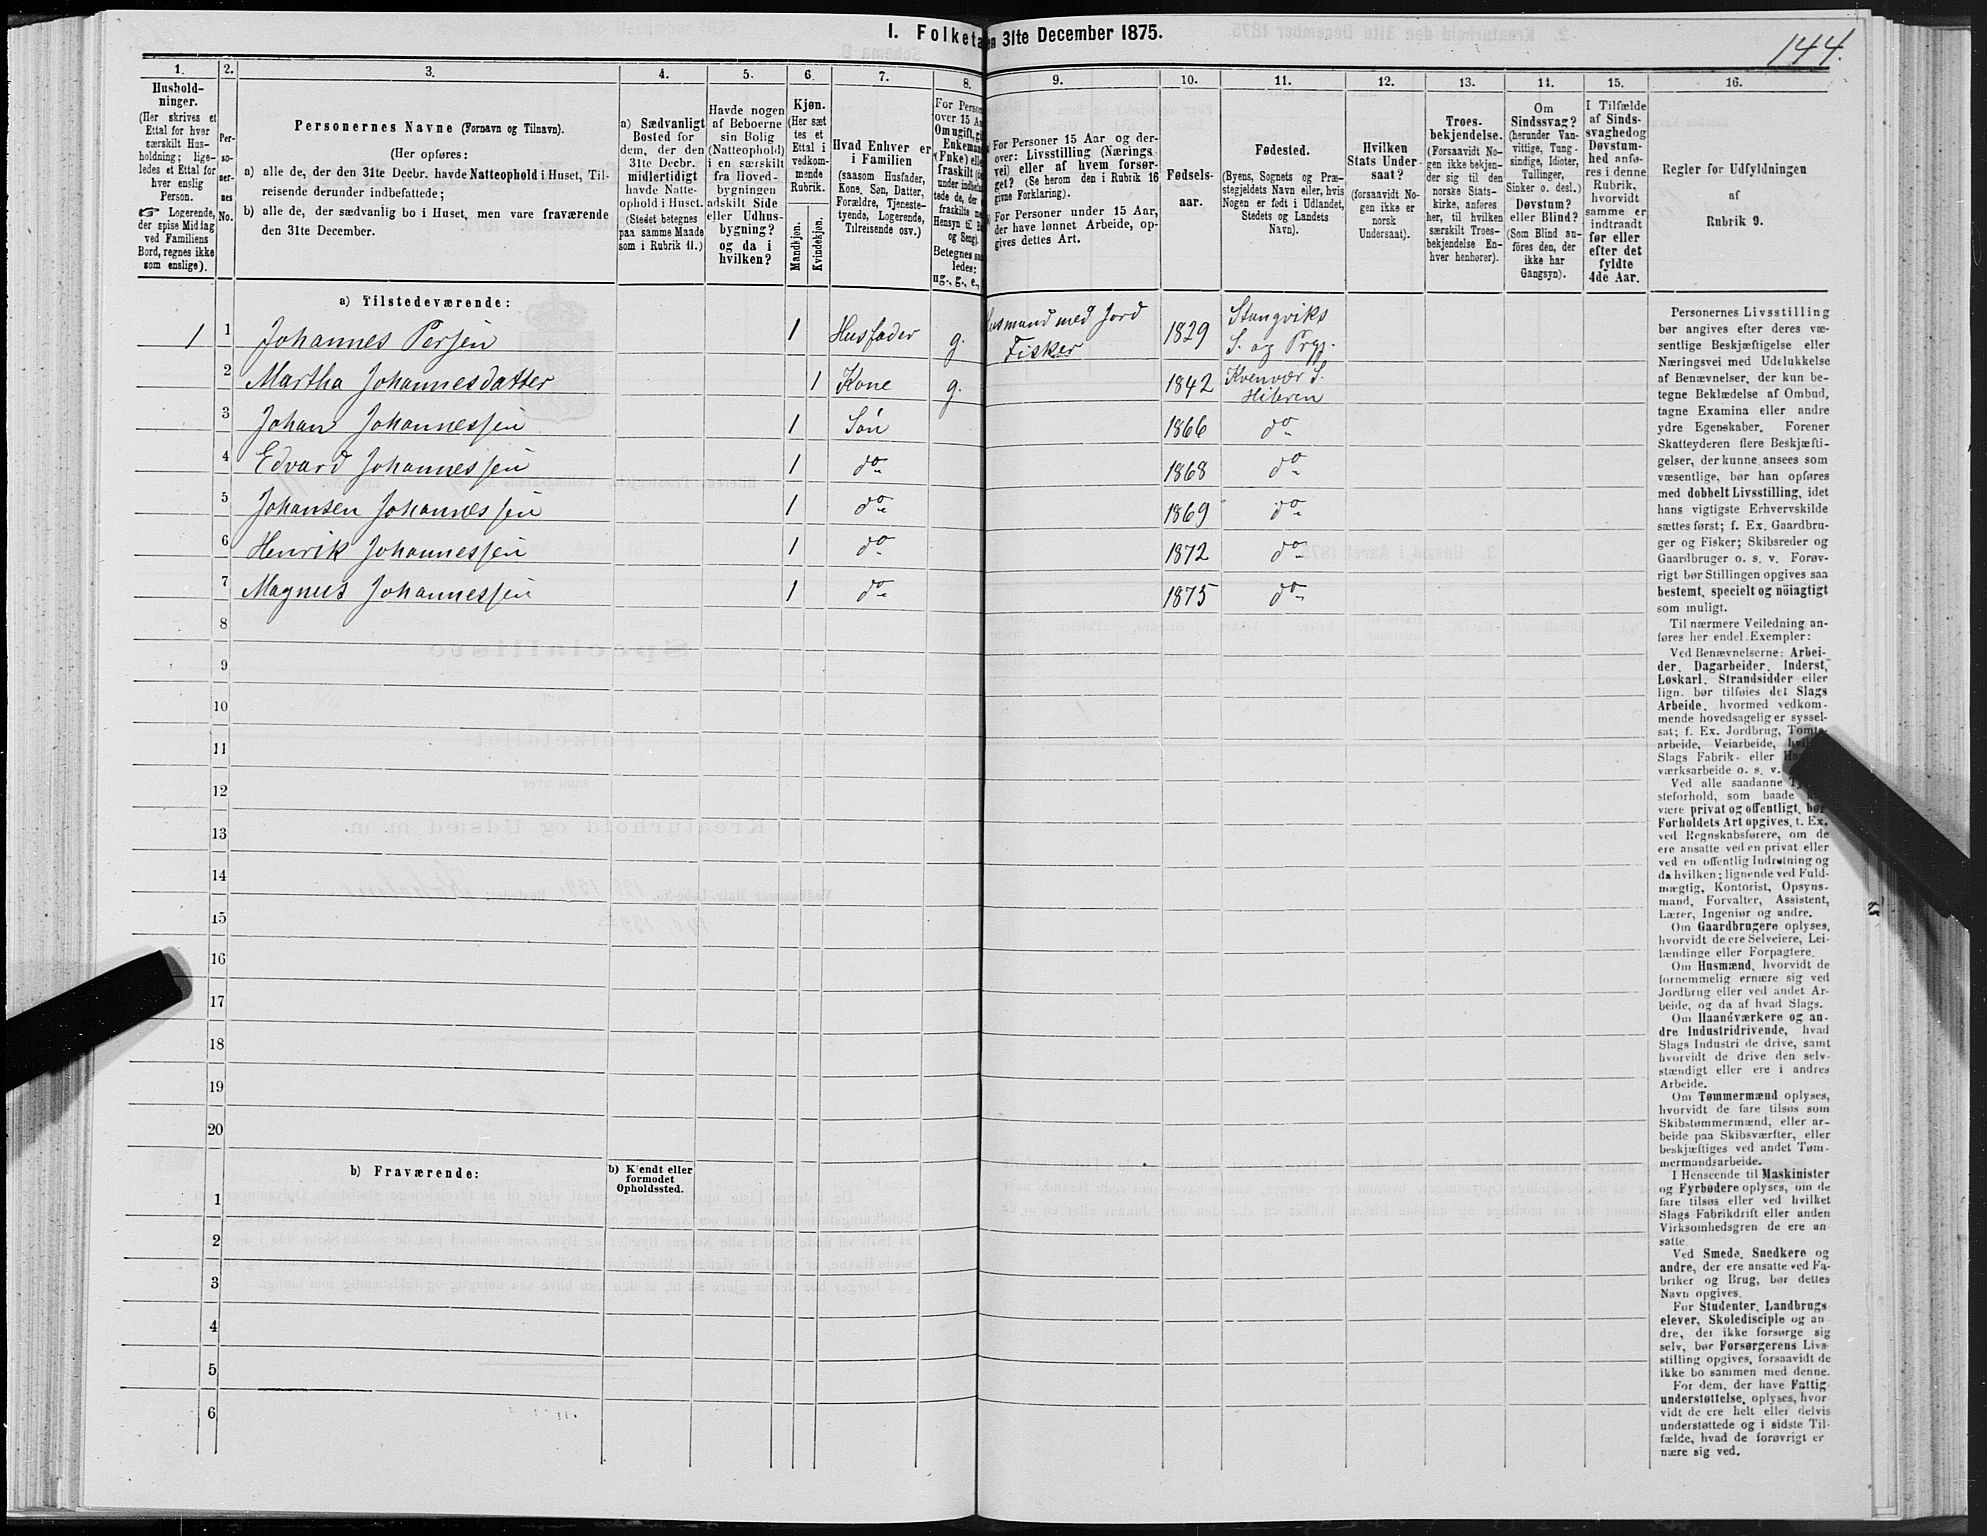 144.
I. Folketa
en 31te December 1875.
1.
2.
3.
4.
5.
6.
7.
8.
9.
10.
11.
12.
13.
14.
15.
16.
Hushold-
ninger.
(Her skrives et
Ettal for hver
særskilt Hus-
holdning; lige-
ledes et Ettal for
hver enslig
Person.
☞ Logerende,
der spise Midtag
ved Familiens
Bord, regnes ikke
som enslige).
Per-
so-
ner-
nes
No.
Personernes Navne (Fornavn og Tilnavn).
(Her opføres:
a) alle de, der den 31te Decbr. havde Natteophold i Huset, Til-
reisende derunder indbefattede;
b) alle de, der sædvanlig bo i Huset, men vare fraværende
den 31te December.
a) Sædvanligt
Bosted for
dem, der den
31te Decbr.
midlertidigt
havde Natte-
ophold i Huset.
(Stedet betegnes
paa samme Maade
som i Rubrik 11.)
Havde nogen
af Beboerne
sin Bolig
(Natteophold)
i en særskilt
fra Hoved-
bygningen
adskilt Side
eller Udhus-
bygning?
og da i
hvilken?
Kjøn.
(Her sæt
tes et
Ettal i
vedkom-
mende
Rubrik.
Mandkjøn.
Kvindekjøn.
Hvad Enhver er
i Familien
(saasom Husfader,
Kone, Søn, Datter,
Forældre, Tjeneste-
tyende, Logerende,
Tilreisende osv.)
For Person
over 15 Aa
Om ugift, gi
Enkeman
(Enke) elle
fraskilt (de
under indbefat
tede de, der
fraskilte me
Hensyn til Bo
og Seng).
Betegnes saa
ledes:
ug., g., e.,
For Personer 15 Aar og der-
over: Livsstilling (Nærings
vei) eller af hvem forsør-
get? (Se herom den i Rubrik 16
givne Forklaring).
For Personer under 15 Aar,
der have lønnet Arbeide, op-
gives dettes Art.
Fødsels-
aar.
Fødested.
(Byens, Sognets og Præ-
stegjeldets Navn eller, hvis
Nogen er født i Udlandet,
Stedets og Landets
Navn).
Hvilken
Stats Under-
saat?
(forsaavidt No-
gen ikke er
norsk
Undersaat).
Troes-
bekjendelse.
(Forsaavidt No-
gen ikke bekjen-
der sig til den
norske Stats-
kirke, anføres
her, til hvilken
særskilt Troes-
bekjendelse En-
hver henhører).
Om
Sindssvag?
(herunder Van-
vittige, Tung-
sindige, Idioter,
Tullinger,
Sinker o. desl.)
Døvstum?
eller Blind?
(Som Blind an-
føres den, der
ikke har
Gangsyn).
I Tilfælde
af Sinds-
svaghed og
Døvstum-
hed anfø-
res i denne
Rubrik,
hvorvidt
samme er
indtraadt
før eller
efter det
fyldte
4de Aar.
Regler før Udfyldningen
af
Rubrik 9.
a) Tilstedeværende:
1 1 Johannes Persen 1 Husfader g. Husmand med Jord Fisker 1829 Stangviks S. og Prgj.
2 Martha Johannesdatter 1 Kone g. 1842 Kvenvær S. Hiteren
3 Johan Johannessen 1 Søn 1866 do
4 Edvard Johannessen 1 do 1868 do
5 Johansen Johannessen 1 do 1869 do
6 Henrik Johannessen 1 do 1872 do
7 Magnus Johannessen 1 do 1875 do
8
9
10
11
12
13
14
15
16
17
18
19
20
b) Fraværende:
b) Kjendt eller
formodet
Opholdssted.
1
2
3
4
5
6
Personernes Livsstilling
bør angives efter deres væ-
sentlige Beskjæftigelse eller
Næringsvei med Udelukkelse
af Benævnelser, der kun be-
tegne Beklædelse af Ombud,
tagne Examina eller andre
ydre Egenskaber. Forener
Skatteyderen flere Beskjæfti-
gelser, der kunne ansees som
væsentlige, bør han opføres
med dobbelt Livsstilling, idet
hans vigtigste Erhvervskilde
sættes først; f. Ex. Gaardbru-
ger og Fisker; Skibsreder og
Gaardbruger o. s. v. Forøv-
rigt bør Stillingen opgives saa
bestemt, specielt og nöiagtigt
som muligt.
Til nærmere Veiledning an-
føres her endel Exempler:
Ved Benævnelserne: Arbei-
der, Dagarbeider, Inderst,
Løskarl, Strandsidder eller
lign. bør tilføies det Slags
Arbeide, hvormed vedkom-
mende hovedsagelig er syssel-
sat; f. Ex. Jordbrug, Tomte-
arbeide, Veiarbeide,
Slags Fabrik- eller
værksarbeide o. s. v.
Ved alle saadanne
steforhold, som baade
være privat og offentligt, bør
Forholdets Art opgives, f. Ex.
ved Regnskabsførere, om de
ere ansatte ved en privat eller
ved en offentlig Indretning og
da hvilken; lignende ved Fuld-
mægtig, Kontorist, Opsyns-
mand, Forvalter, Assistent,
Lærer, Ingeniør og andre.
Om Gaardbrugere oplyses,
hvorvidt de ere Selveiere, Lei-
lændinge eller Forpagtere.
Om Husmænd, hvorvidt de
fornemmelig ernære sig ved
Jordbrug eller ved andet Ar-
beide, og da af hvad Slags.
Om Haandværkere og an-
dre Industridrivende, hvad
Slags Industri de drive, samt
hvorvidt de drive den selv-
stændigt eller ere i andres
Arbeide.
Om Tømmermænd oplyses,
hvorvidt de fare tilsøs som
Skibstømmermænd, eller ar-
beide paa Skibsværfter, eller
beskjæftiges ved andet Tøm-
mermandsarbeide.
I Henseende til Maskinister
og Fyrbødere oplyses, om de
fare tilsøs eller ved hvilket
Slags Fabrikdrift eller anden
Virksomhedsgren de ere an-
satte.
Ved Smede, Snedkere og
andre, der ere ansatte ved Fa-
briker og Brug, bør dettes
Navn opgives.
For Studenter, Landbrugs
elever, Skoledisciple og an-
dre, der ikke forsørge sig
selv, bør Forsørgerens Livs-
stilling opgives, forsaavidt de
ikke bo sammen med denne.
For dem, der have Fattig
understøttelse, oplyses, hvor-
vidt de ere helt eller delvis
understøttede og i sidste Til-
fælde, hvad de forøvrigt er
nære sig ved.